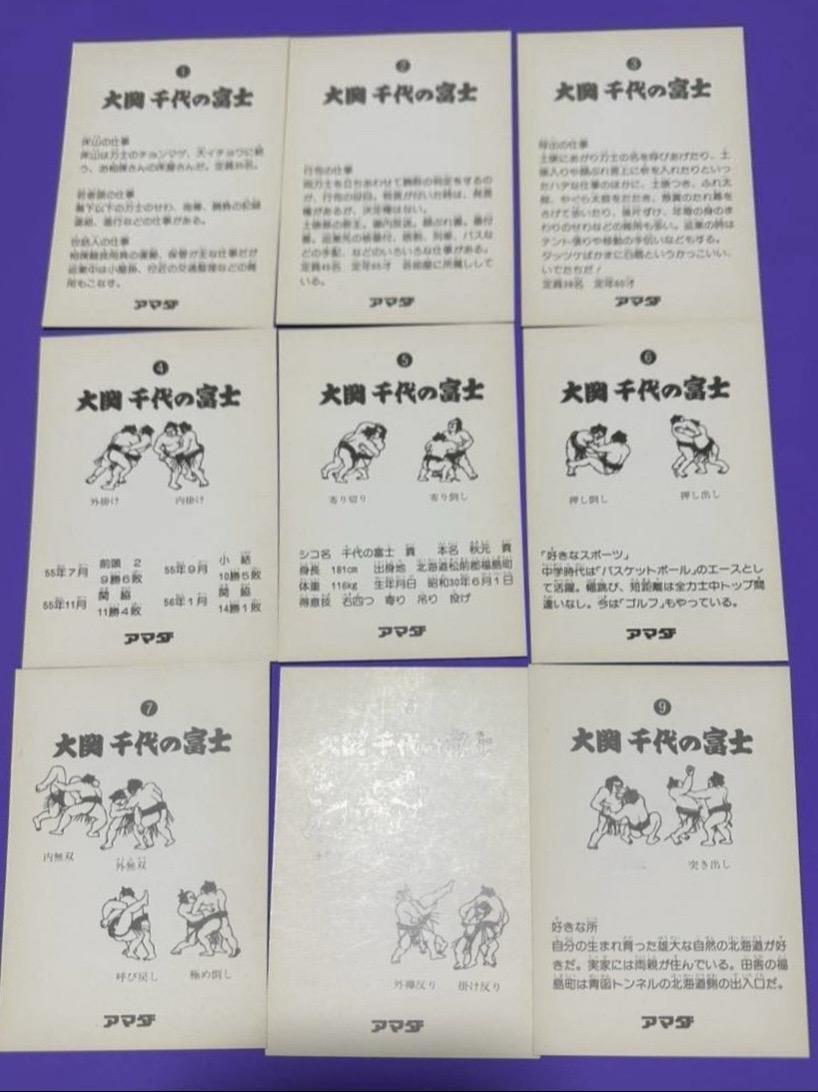 1
大関 千代の富士
床山の仕事
床山は力士のチョンマゲ、大イチョウに結
う、お相撲さんの床屋さんだ。定員
若者頭の仕事
幕下以下の力士のせわ、指導、勝負の記録
連絡、進行などの仕事がある。
世話人の仕事
相撲競技用具の運搬、保管が主な仕事だが
巡業中は小屋掛、付近の交通整理などの雑
用もこなす。
アマダ
2
大関 千代の富士
行司の仕事
両力士を立ちあわせて勝敗の判定をするの
が、行司の役目。物言が付いた時は、発言
権があるが、決定権はない。
土俵祭の祭主。場内放送。顔ぶれ書。番付
書。巡業先の板番付、旅館、列車、バスな
どの手配、などのいろいろな仕事がある。
定員45名 定年65才 各部屋に所属してい
いる。
アマダ
3
大関 千代の富士
呼出の仕事
土俵にあがり力士の名を呼びあげたり、土
俵入りや顔ぶれ言上に析を入れたりといっ
たハデな仕事のほかに、土俵つき、ふれ太
鼓、やぐら太鼓をたたき、懸賞のたれ幕を
さげて歩いたり、後片ずけ、年寄の身のま
わりのせわなどの雑用も多い。巡業の時は
テント張りや移動の手伝いなどもする。
タッツケばかまに白扇というかっこいい、
いでたちだ!
定員38名 定年60才
アマダ
4
大関 千代の富士
外掛け 内掛け
55年7月 前頭 2 9勝6敗 55年9月 小結 10勝5敗
55年11月 関脇 11勝4敗 56年1月 関脇 14勝1敗
アマダ
5
大関 千代の富士
寄り切り 寄り倒し
シコ名 千代の富士 貢 本名 秋元 貢
身長 181cm 出身地 北海道松前郡福島町
体重 116kg 生年月日 昭和30年6月1日
得意技 右四つ 寄り 吊り 投げ
アマダ
6
大関 千代の富士
押し倒し 押し出し
「好きなスポーツ」
中学時代は「バスケットボール」のエースとし
て活躍。幅跳び、短距離は全力士中トップ間
違いなし。今は「ゴルフ」もやっている。
アマダ
7
大関 千代の富士
内無双 外無双
呼び戻し 極め倒し
アマダ
大関 千代の富士
外襷反り 掛け反り
アマダ
9
大関 千代の富士
突き出し
好きな所
自分の生まれ育った雄大な自然の北海道が好
きだ。実家には両親が住んでいる。田舎の福
島町は青函トンネルの北海道側の出入口だ。
アマダ